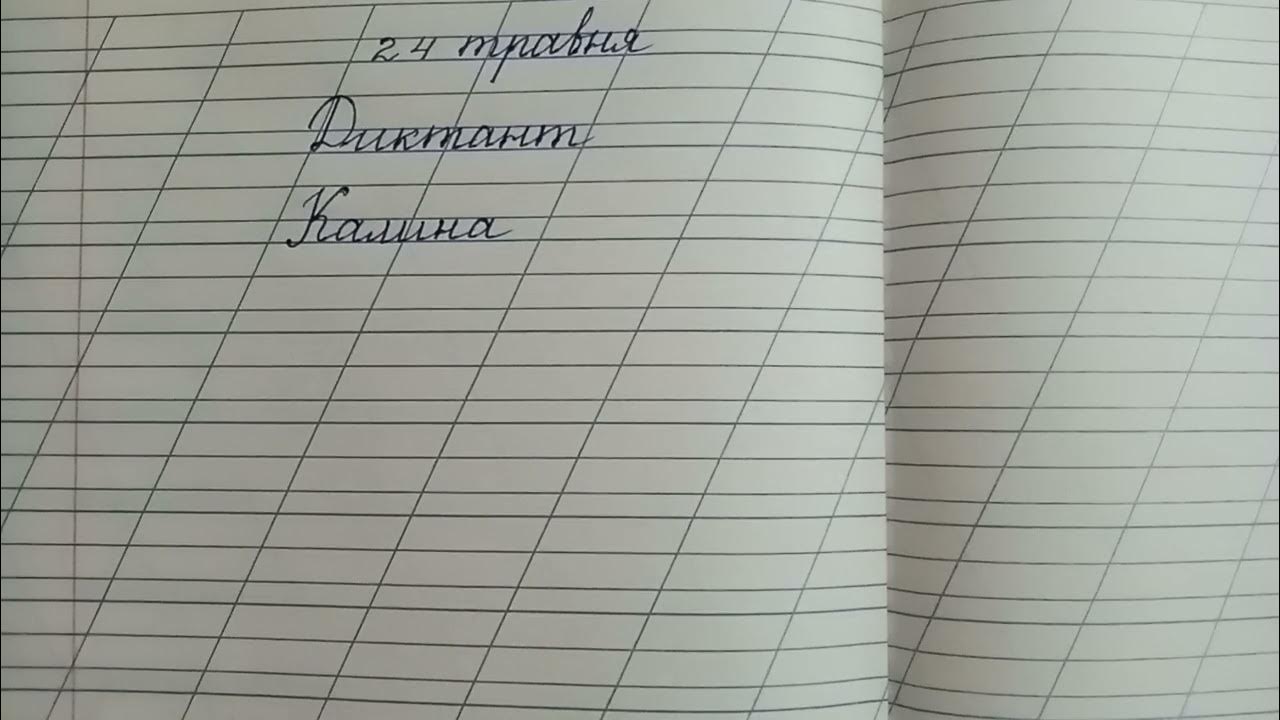 24 травня
Диктант
Калина